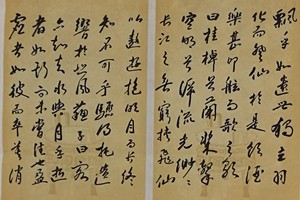 飄乎如遺世獨立羽
化而登仙於是飲酒
樂甚扣舷而歌之歌
曰桂棹兮蘭槳擊
空明兮泝流光渺渺
長江之無窮挾飛仙
以遨遊抱明月而長終
知不可乎驟得託遺
響於悲風蘇子曰客
亦知夫水與月乎逝
者如斯而未嘗往也盈
虛者如彼而卒莫消